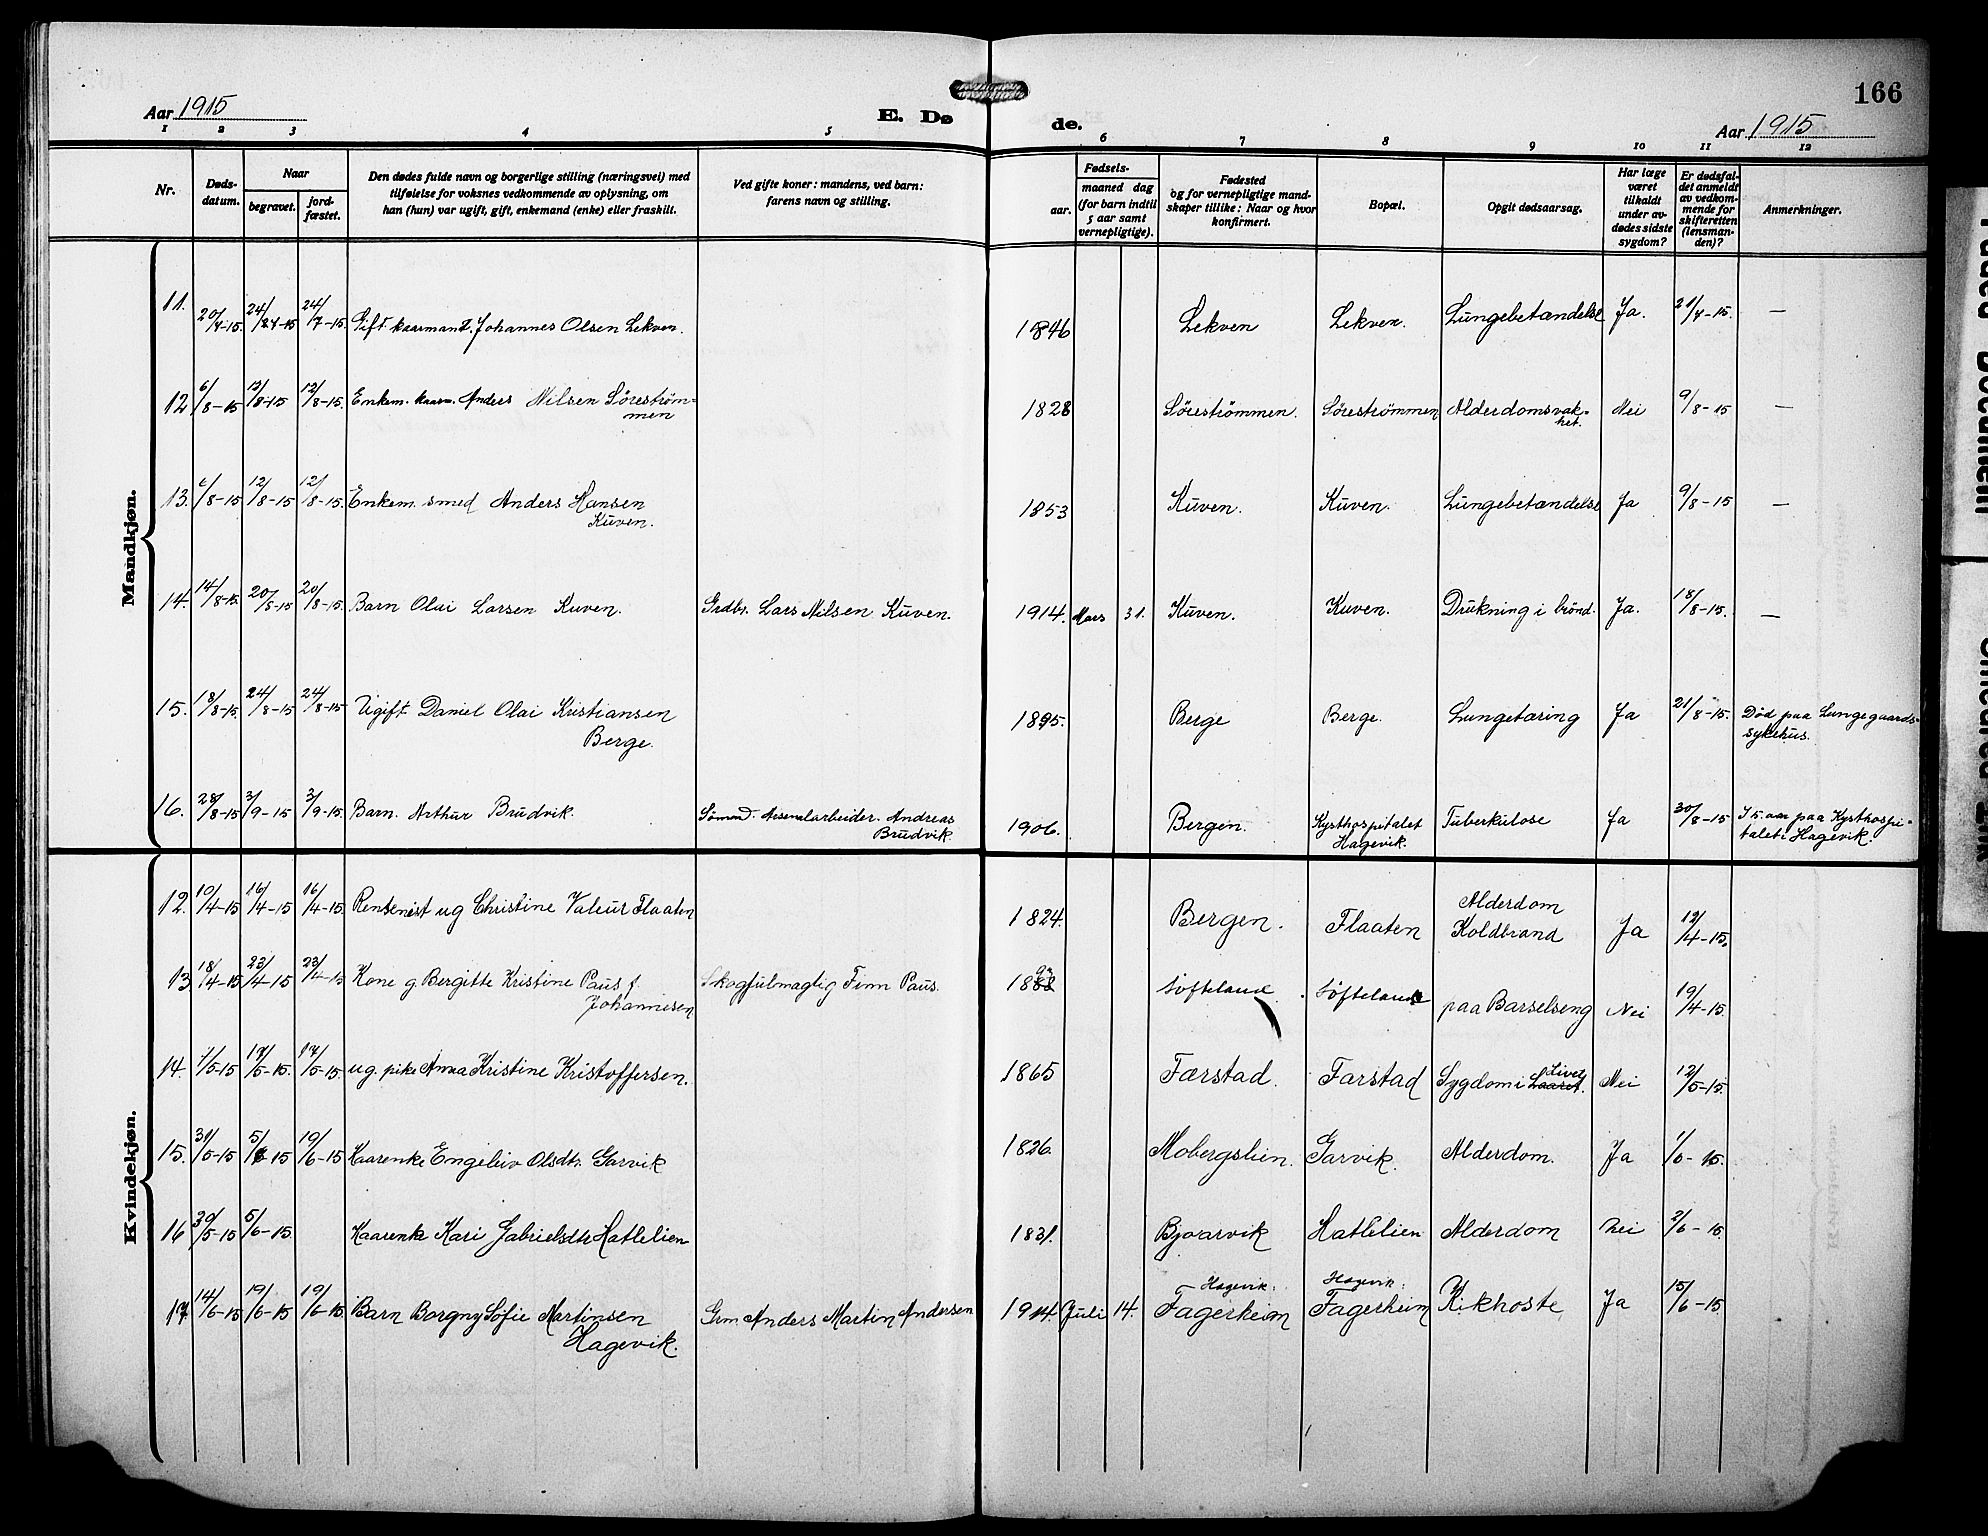 166
Aar 1915
E. Dø
de.
Aar 1915
1 2 3 4 5 6 7 8 9 10 11 12
Nr.
Døds-
datum.
Naar
begravet.
jord-
fæstet.
Den dødes fulde navn og borgerlige stilling (næringsvei) med
tilføielse for voksnes vedkommende av oplysning, om
han (hun) var ugift, gift, enkemand (enke) eller fraskilt.
Ved gifte koner: mandens, ved barn:
farens navn og stilling.
Fødsels-
aar.
maaned dag
(for barn indtil
5 aar samt
vernepligtige).
Fødested
og for vernepligtige mand-
skaper tillike: Naar og hvor
konfirmert.
Bopæl.
Opgit dødsaarsag.
Har læge
været
tilkaldt
under av-
dødes sidste
sygdom?
Er dødsfal-
det anmeldt
av vedkom-
mende for
skifteretten
(lensman-
den)?
Anmerkninger.
Mandkjøn.
11. 20/7-15. 24/7-15 24/7-15. Gift kaarmand. Johannes Olsen Lekven. 1846 Lekven Lekven. Lungebetændelse Ja. 21/7-15. —
12 6/8-15 12/8-15 12/8-15. Enkem. kaarm. Anders Nilsen Sörestrøm-
men 1828 Sörestrømmen. Sörestrømmen Alderdomsvak-
het. Nei 9/8-15 —
13. 6/8-15 12/8-15 12/8-15. Enkem. smed Anders Hansen
Kuven. 1853 Kuven. Kuven. Lungebetændelse Ja 9/8-15 —
14. 14/8-15. 20/8-15 20/8-15. Barn Olai Larsen Kuven. Grdbr. Lars Nilsen Kuven. 1914. Mars 31. Kuven. Kuven. Drukning i brönd. Ja. 18/8-15. —
15. 18/8-15. 24/8-15 24/8-15 Ugift Daniel Olai Kristiansen
Berge. 1895. Berge Berge. Lungetæring Ja 21/8-15. Död paa Lungegaards-
sykehus.
16. 28/8-15 3/9-15 3/9-15. Barn. Arthur Brudvik. Sömand. Arsenalarbeider. Andreas
Brudvik. 1906. Bergen. Kysthospitalet
Hagevik. Tuberkulose Ja 30/8-15 I 5. aar paa Kysthospi-
talet i Hagevik.
Kvindekjøn.
12. 10/4-15 16/4-15 16/4-15. Rentenist ug Christine Valeur Flaaten 1824. Bergen. Flaaten Alderdom
Koldbrand Ja 12/4-15.
13 18/4-15 23/4-15 23/4-15 Kone g Bergitte Kristine Paus f.
Johannesen Skogfulmagtig Finn Paus. 1888 Søfteland Søfteland paa Barselseng Nei 19/4-15.
14. 11/5-15 17/5-15. 17/5-15. ug. pike Anna Kristine Kristoffersen. 1865 Færstad. Færstad Sygdom i Laaret. Livet Nei 12/5-15
15. 31/5-15 5/6 15 19/6-15 Kaarenke Engeliv Olsdtr. Garvik 1826. Mobergslien. Garvik. Alderdom. Ja 1/6-15.
16 30/5-15 5/6-15. Kaarenke Kari Gabrielsdtr Hatlelien 1831. Bjaarvik Hatlelien Alderdom Nei 2/6-15.
17. 14/6-15 19/6-15 19/6-15. Barn Borgny Sofie Martinsen
Hagevik. Grm. Anders Martin Andersen 1914. Juli 14. Hagevik:
Fagerheim Hagevik:
Fagerheim Kikhoste, Ja 15/6-15